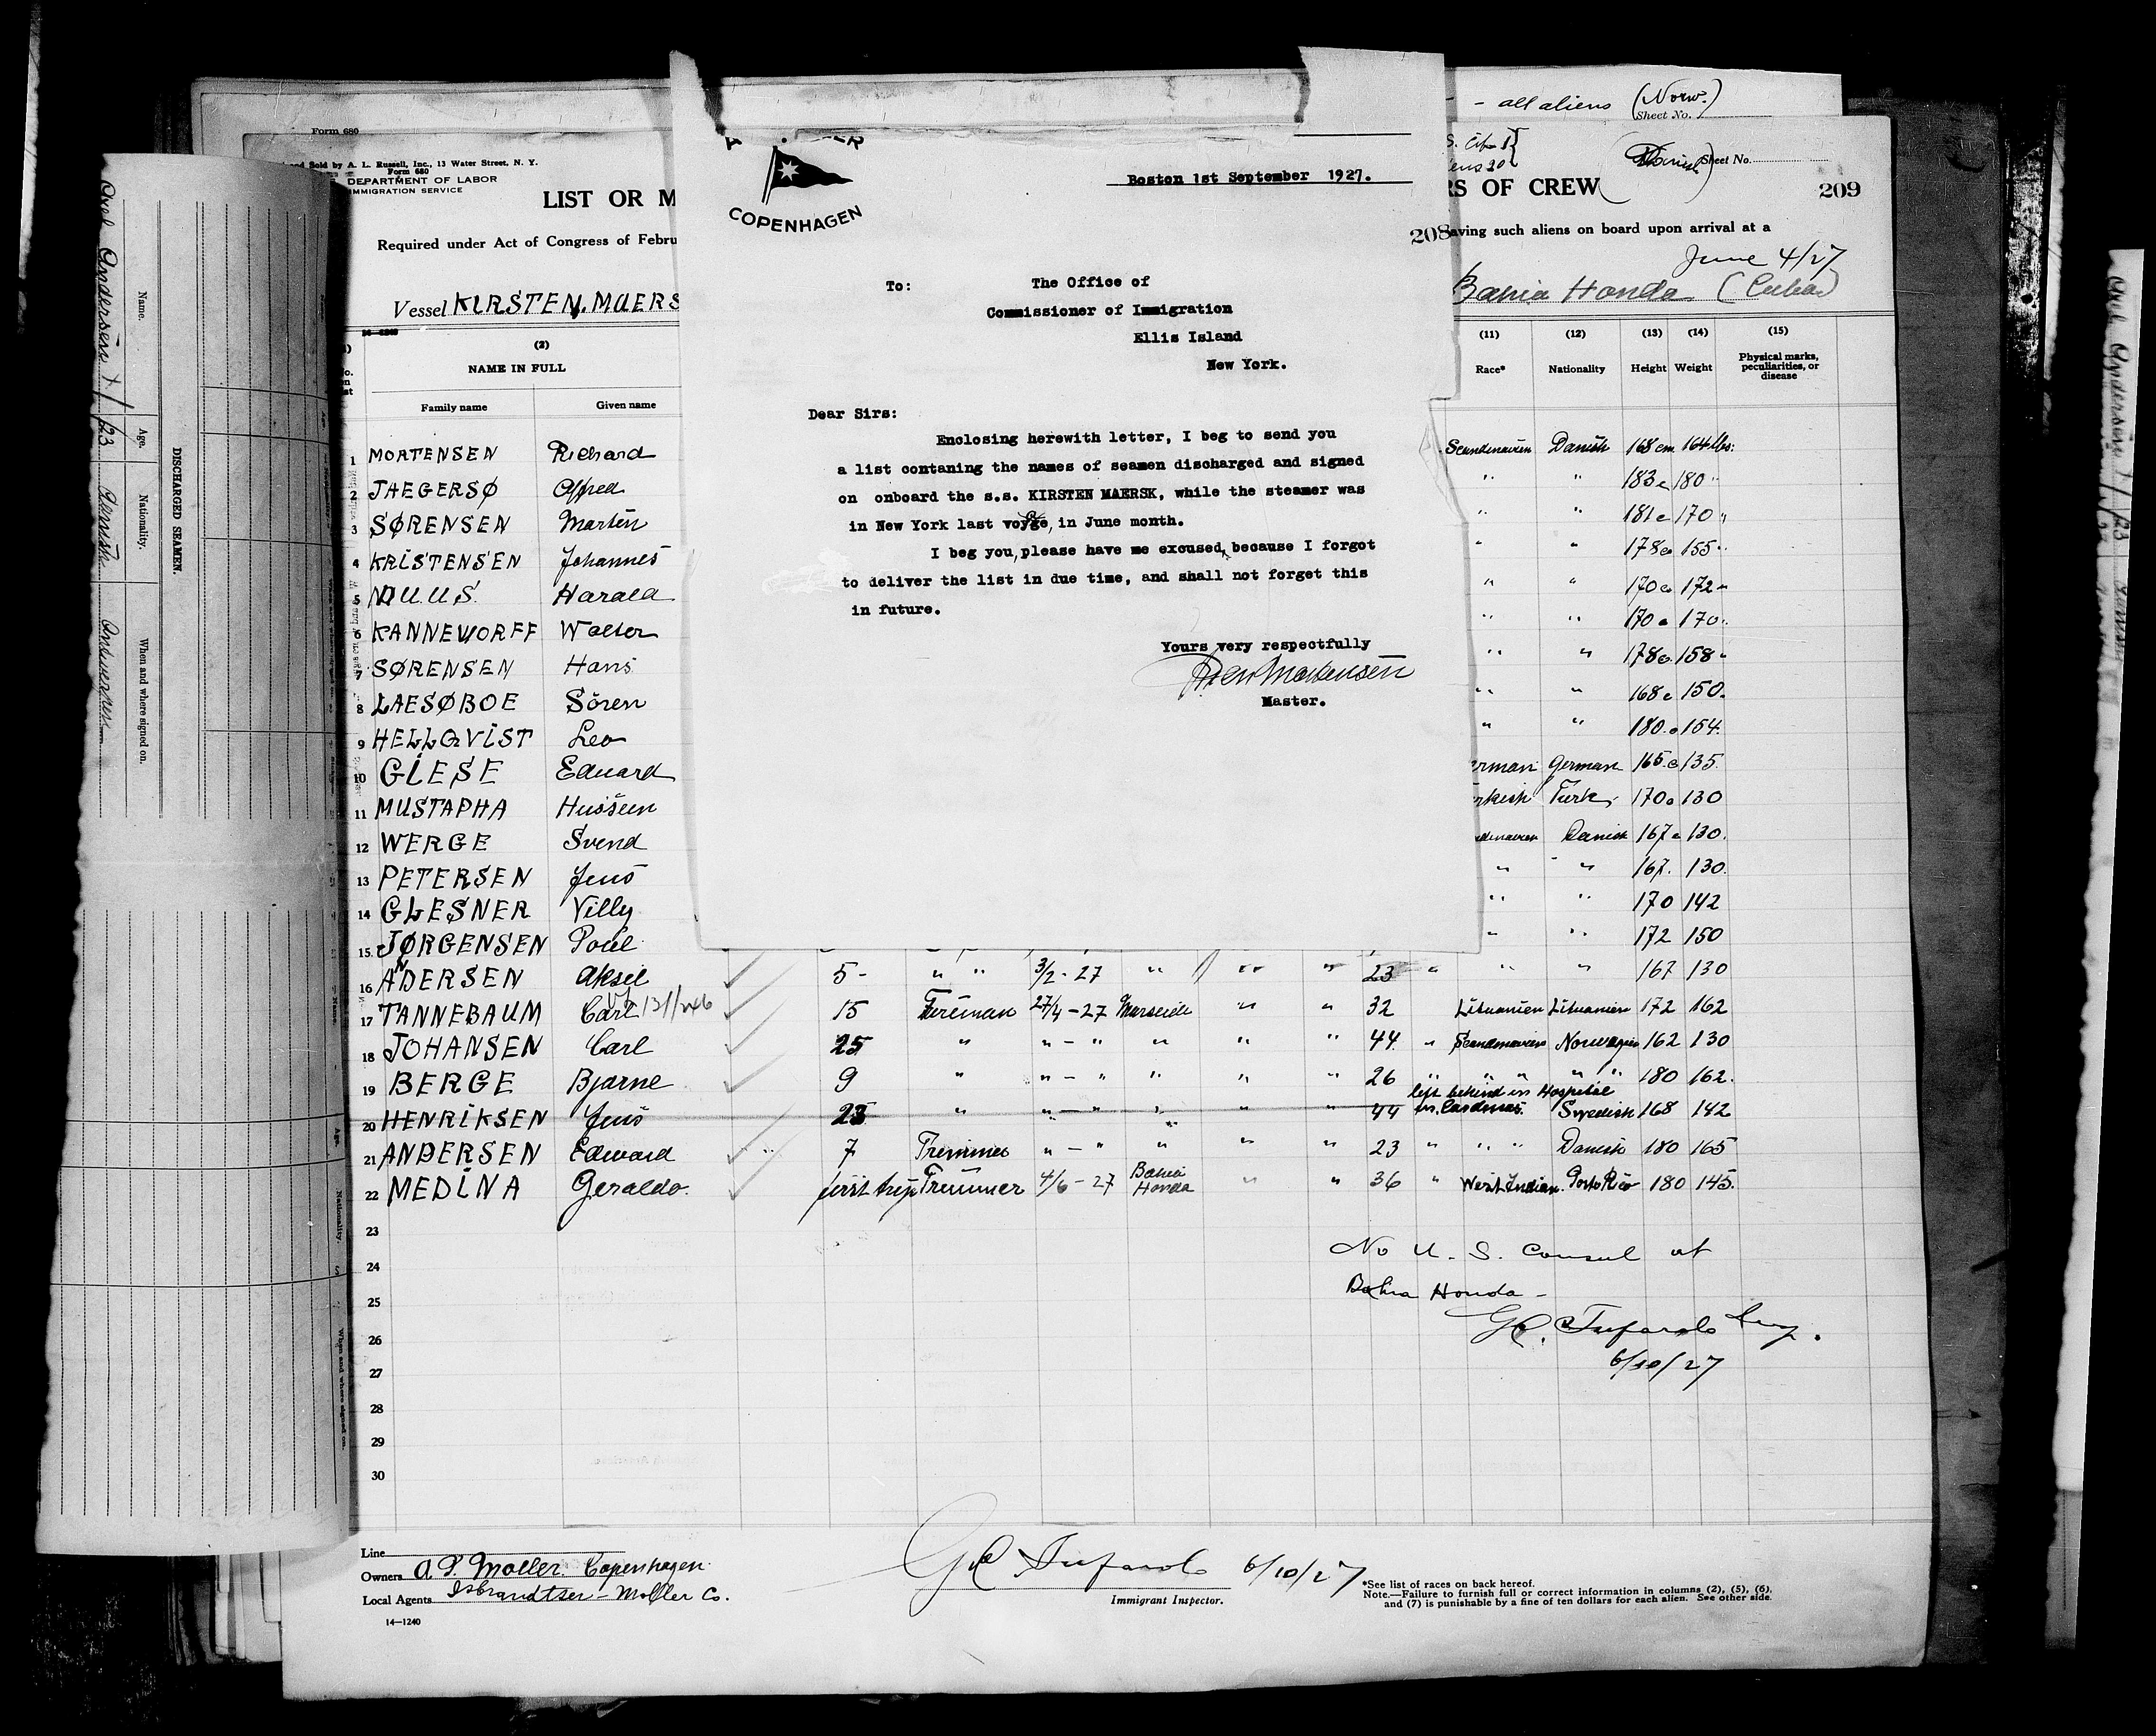 Form 680
Sold by A. L. Russell, Inc., 13 Water Street, N. Y.
Form 680
DEPARTMENT OF LABOR
IMMIGRATION SERVICE
- all aliens (Norw.)
Sheet No.
Sheet No.
LIST OR M
RS OF CREW
209
Required under Act of Congress of Febru
208
aving such aliens on board upon arrival at a
June 4/27
Vessel KIRSTEN. MAERS
Bahia Honda (Cuba)
COPENHAGEN
Boston 1st September 1927.
To:
The Office of
Commissioner of Immigration
Ellis Island
New York.
Dear Sirs:
Enclosing herewith letter, I beg to send you
a list contaning the names of seamen discharged and signed
on onboard the s.s. KIRSTEN MAERSK, while the steamer was
in New York last voyge, in June month.
I beg you, please have me excused, because I forgot
to deliver the list in due time, and shall not forget this
in future.
Yours very respectfully
Mortensen
Master.
(2)
NAME IN FULL
Family name Given name
(11) (12) (13) (14) (15)
Race* Nationality Height Weight Physical marks, peculiarities, or disease
1 MORTENSEN Richard Scandinavien Danish 168 cm 164 lbs.
2 JAEGERSØ Alfred " " 183 c 180 "
3 SØRENSEN Martin " " 181 c 170 "
4 KRISTENSEN Johannes " " 178 c 155 "
5 MUUS. Harald " " 170 c 172 "
6 KANNEWORFF Walter " " 170 c 170 "
7 SØRENSEN Hans " " 178 c 158 "
8 LAESØBOE Sören " " 168 c 150.
9 HELLQVIST Leo " " 180 c 154.
10 GIESE Eduard erman German 165 c 135
11 MUSTAPHA Hussein rkish Turk 170 c 130
12 WERGE Svend dinavien Danish 167 c 130.
13 PETERSEN Jens " " 167. 130.
14 GLESNER Villy " " 170 142
15 JØRGENSEN Poul " " 172 150
16 ANDERSEN Aksel 5 - " " 3/2 - 27 " " " 23 " " " 167 130
17 TANNEBAUM Carl 15 Fireman 27/4 - 27 Marseille " " 32 Lituanien Lituanien 172 162
18 JOHANSEN Carl 25 " " - " " " " 44 " Scandinavien Norwegian 162 130
19 BERGE Bjarne 9 " " - " " " " 26 " " " " " 180 162.
left behind in Hospital
20 HENRIKSEN Jens 28 " " - " " " " 44 in Cardenas. Swedish 168 142
21 ANDERSEN Edward 7 Trimmer " - " " " " 23 " " " Danish 180 165
22 MEDINA Geraldo. first trip Trimmer 4/6 - 27 Bahia Honda " " 36 " West Indian. Porto Rico 180 145.
23
24
25
26
27
28
29
30
No U. S. Consul at
Bahia Honda -
6/10/27
Line
Owners A. P. Moller. Copenhagen
Local Agents Isbrandtsen - Moller Co.
14—1240
6/10/27
Immigrant Inspector.
*See list of races on back hereof.
Note.—Failure to furnish full or correct information in columns (2), (5), (6),
and (7) is punishable by a fine of ten dollars for each alien. See other side.
DISCHARGED SEAMEN.
Name. Age. Nationality. When and where signed on.
Axel Andersen 23 Danish